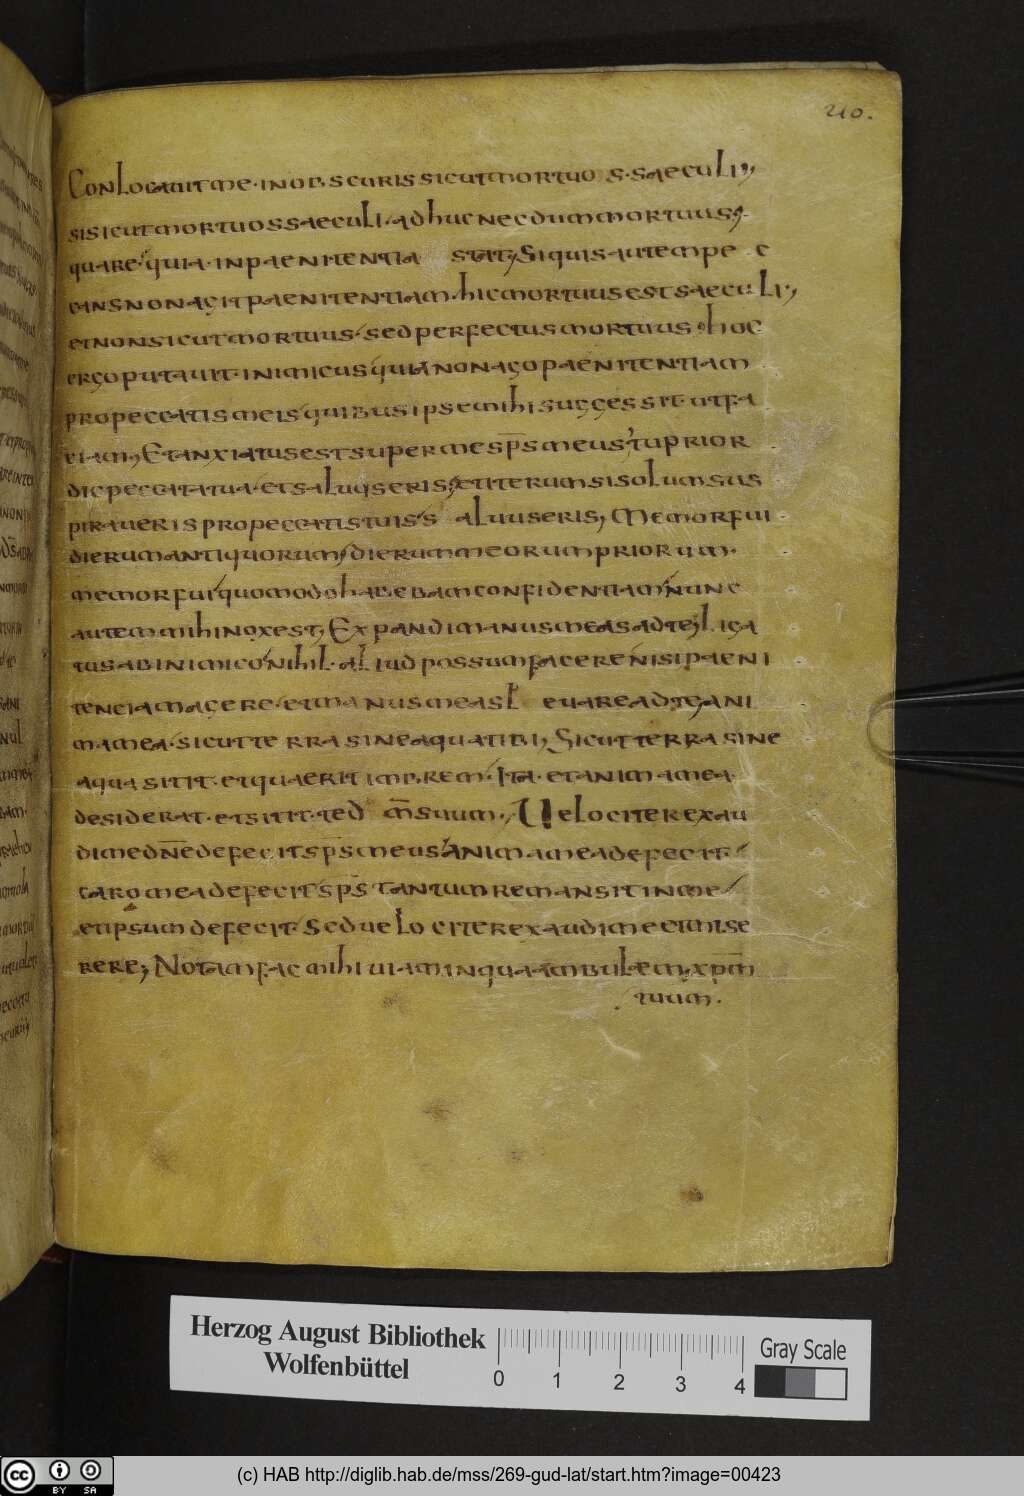 210.
Conlocauit me · in obscuris sicut mortuos · saeculi,,
si sicut mortuos saeculi · adhuc necdum mortuus ·
quare · quia · in paenitentia stat, Si quis autem pec
cans non açit paenitentiam · hic mortuus est saeculi ·,
et non sicut mortuus · sed perfectus mortuus · hoc
erço putauit · inimicus quia non aço paenitentiam
pro peccatis meis quibus ipse mihi suççessit ut fa
ciam, Et anxiatus est super me sp̅s meus · tu prior
dic peccata tua · et saluus eris · et iterum si solum sus
piraueris pro peccatis tuis · saluus eris, Memor fui
dierum antiquorum, dierum meorum priorum ·
memor fui quomodo habebam confidentiam · nunc
autem mihi nox est, Expandi manus meas ad te, liça
tus ab inimico nihil · aliud possum facere nisi paeni
tenciam açere · et manus meas leuare ad te, ani
ma mea · sicut terra sine aqua tibi, Sicut terra sine
aqua sitit · et quaerit imbrem · Ita · et anima mea
desiderat · et sitit · te d̅m̅ suum ·, Uelociter exau
di me dn̅e defecit sp̅s meus anima mea defecit
caro mea defecit sp̅s tantum remansit in me
et ipsum defecit · sed uelociter exaudi me et mise
rere, Notam fac mihi uiam in qua ambulem, xp̅m̅
tuum ·
Herzog August Bibliothek
Wolfenbüttel
0 1 2 3 4
Gray Scale
cc BY SA
(c) HAB http://diglib.hab.de/mss/269-gud-lat/start.htm?image=00423